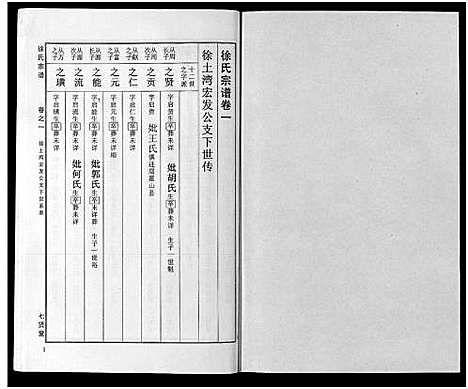 徐氏宗谱卷一
徐土湾宏发公支下世传
十二世
之字派
从周
长子
之贤 字启贤生卒葬未详 妣胡氏生卒葬未详 生子一世魁
从周
次子
之贡 字启贵 妣王氏俱迁居霍山县
之仁 字启仁生卒葬未详
之元 字启元生卒葬未详
长子
之能 字启能生卒葬未详 妣郭氏生卒葬未详 生子一世裕
次子
之流 字启流生卒葬未详 妣何氏生卒葬未详
从万
之子
之璜 字启璜生卒葬未详
徐氏宗谱 卷之一 徐土湾宏发公支下世系
七贤堂
1